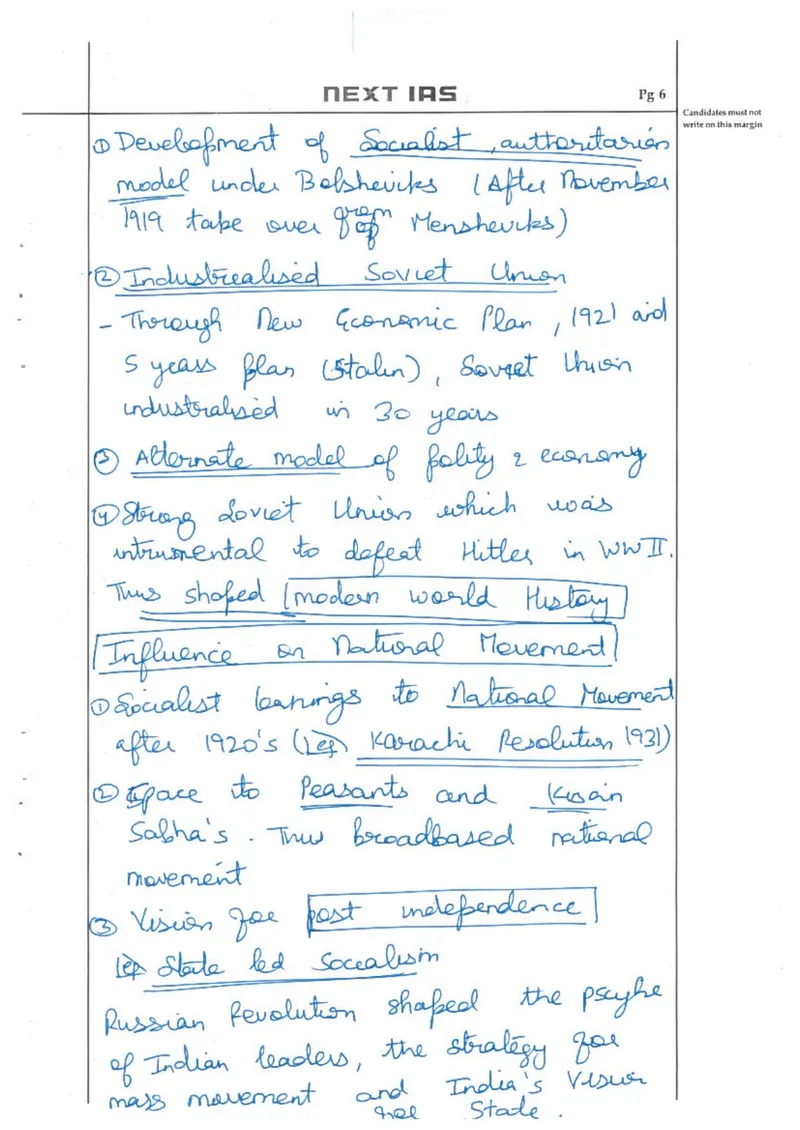 NEXT IAS
Pg 6
Candidates must not
write on this margin
① Development of Socialist, authoritarian
model under Bolshevicks (After November
1919 take over from Menshevicks)
② Industrealised Soviet Union
- Through New Economic Plan, 1921 and
5 years plan (Stalin), Soviet Union
industralised in 30 years
③ Alternate model of polity & economy
④ Strong Soviet Union which was
intrumental to defeat Hitler in WW II.
Thus shaped modern world History
Influence on National Movement
① Socialist leanings to National Movement
after 1920's (eg Karachi Resolution 1931)
② Space to Peasants and Kisan
Sabha's. Thus broadbased national
movement
③ Vision for post independence
eg State led Socealism
Russian Revolution shaped the pscyhe
of Indian leaders, the strategy for
mass movement and India's Vision
for State.